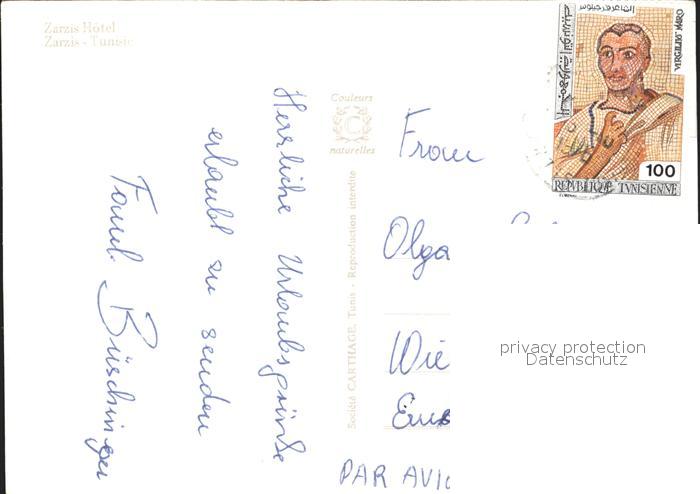 Zarzis Hôtel
Zarzis - Tunisie
Herzliche Urlaubsgrüße
erlaubt zu senden
Faml. Büschinger
Couleurs
C
naturelles
Société CARTHAGE, Tunis - Reproduction interdite
الشاعر فرجيليوس
الجمهورية التونسية
VIRGILIUS MARO
100
REPUBLIQUE TUNISIENNE
Frau
Olga
Wie
PAR AVIO
privacy protection
Datenschutz